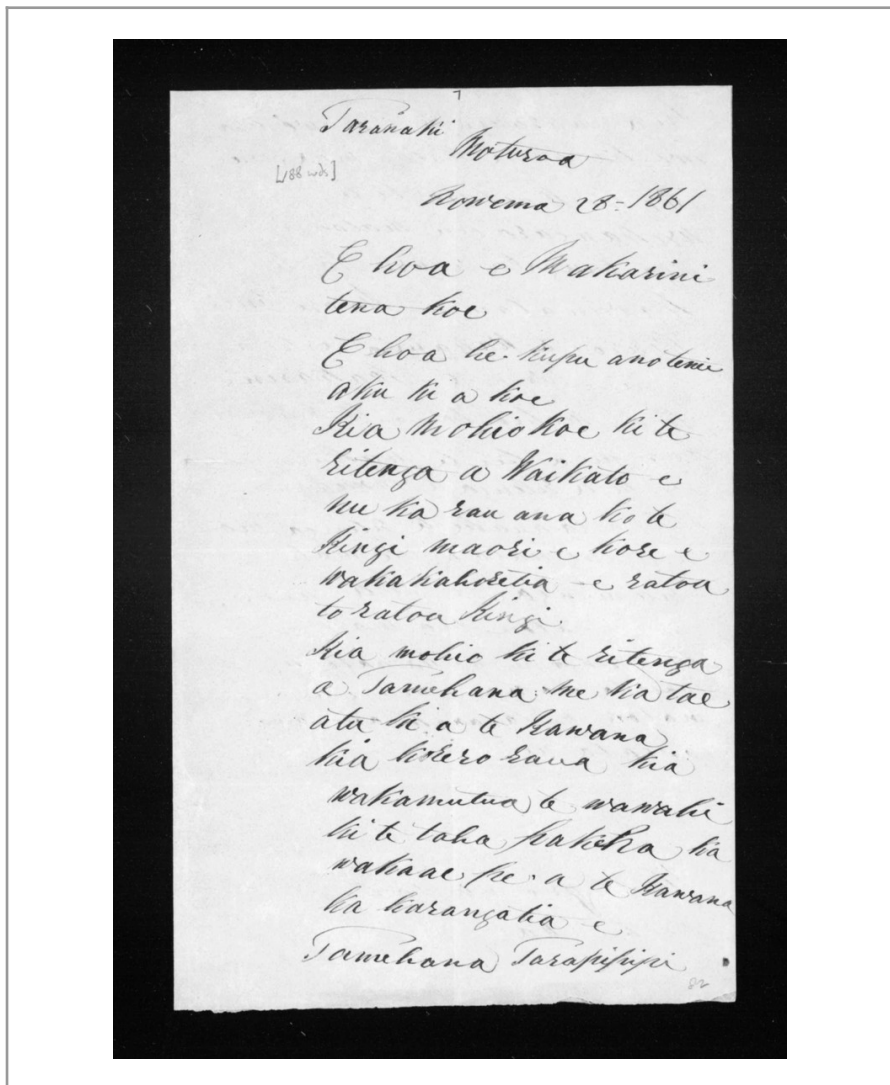 Taranaki
Moturoa
[188 wds]
Nowema 28-1861
E hoa e Makarini
tena koe
E hoa he kupu ano tenei
aku ki a koe
Kia Mohio koe ki te
ritenga a Waikato e
nu ka rau ana ko te
Kingi maori e kore e
wakakahoretia - e ratou
to ratou Kingi
Kia mohio ki te ritenga
a Tamehana me kia tae
atu ki a te Kawana
kia korero raua kia
wakamutua te wawahi
ki te taha pakeha ka
wakaae pe a te Kawana
ka karangatia e
Tamehana Tarapipipi